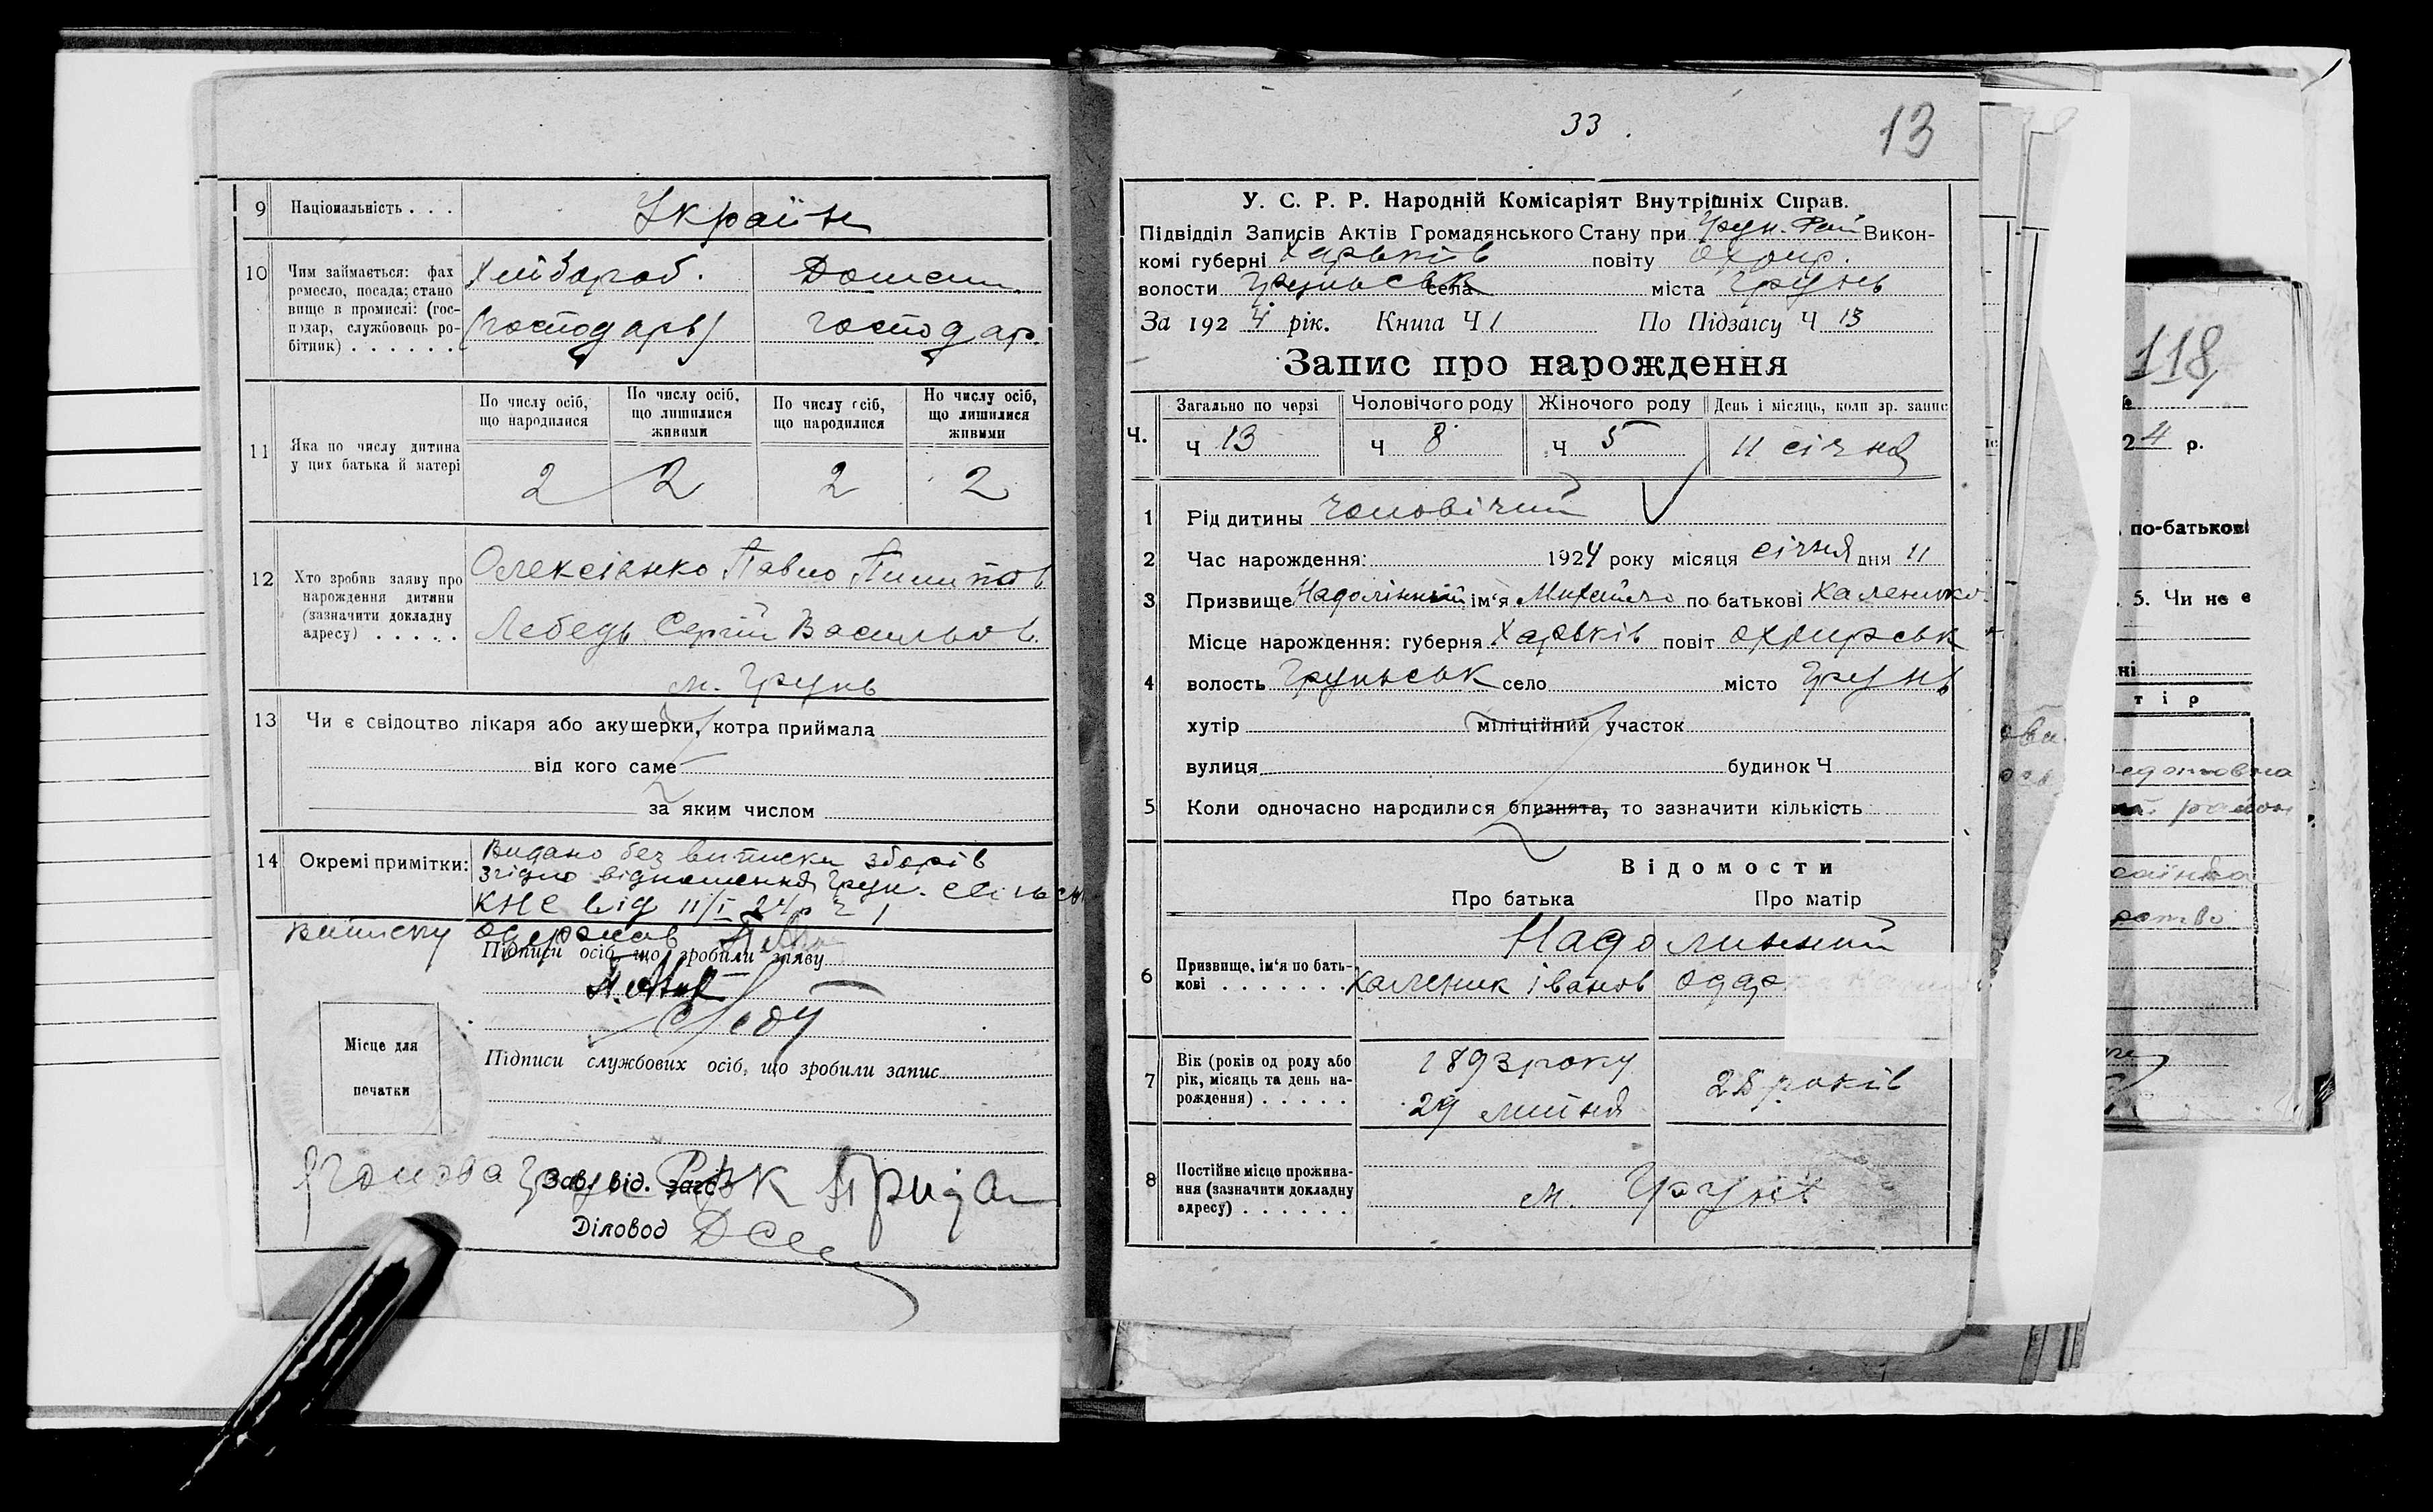 9 Національність . . . Україн
10 Чим займається: фах Хлібороб. Домаш.
ремесло, посада; стано
вище в промислі: (гос-
подар, службовець ро- (господарь) господар.
бітник) . . . . . .
По числу осіб, що народилися
По числу осіб, що лишилися живими
По числу осіб, що народилися
По числу осіб, що лишилися живими
11 Яка по числу дитина
у цих батька й матері 2 2 2 2
12 Хто зробив заяву про Олексієнко Павло Пилипов
нарождення дитини
(зазначити докладну
адресу) . . . . . Лебедь Сергій Васильов.
м. Грунь
13 Чи є свідоцтво лікаря або акушерки, котра приймала
від кого саме
за яким числом
14 Окремі примітки: Видано без виписки зборів
згідно відношення Грун. сільск
КНС від 11/I 24 р Ч 1
виписку одержав
Підписи осіб, що зробили заяву
Підписи службових осіб, що зробили запис
Місце для
печатки
Зав. від. загс
Діловод
33.
13
У. С. Р. Р. Народній Комісаріят Внутрішніх Справ.
Підвідділ Записів Актів Громадянського Стану при Грун. Рай Викон-
комі губерні Харьків повіту Охтир.
волости Груньськ села міста Грунь
За 1924 рік. Книга Ч 1 По Підзагсу Ч 13
Запис про нарождення
Загально по черзі Чоловічого роду Жіночого роду День і місяць, коли зр. запис
Ч. Ч 13 Ч 8 Ч 5 11 січня
1 Рід дитины чоловічий
2 Час нарождення: 1924 року місяця січня дня 11
3 Призвище Надолинний ім'я Михайло по батькові Каленико.
Місце нарождення: губерня Харьків повіт Охтирськ
4 волость Груньськ село місто Грунь
хутір міліційний участок
вулиця будинок Ч
5 Коли одночасно народилися близнята, то зазначити кількість
Відомости
Про батька Про матір
Надолинний
6 Призвище, ім'я по бать-
кові . . . . . . . Каленик Іванов Оддо
7 Вік (років од роду або 1893 року
рік, місяць та день на- 28 років
рождення) . . . . . 29 липня
8 Постійне місце прожива-
ння (зазначити докладну м. Грунь
адресу) . . . . . .
118
24 р.
по-батькові
5. Чи не є
ні
тір